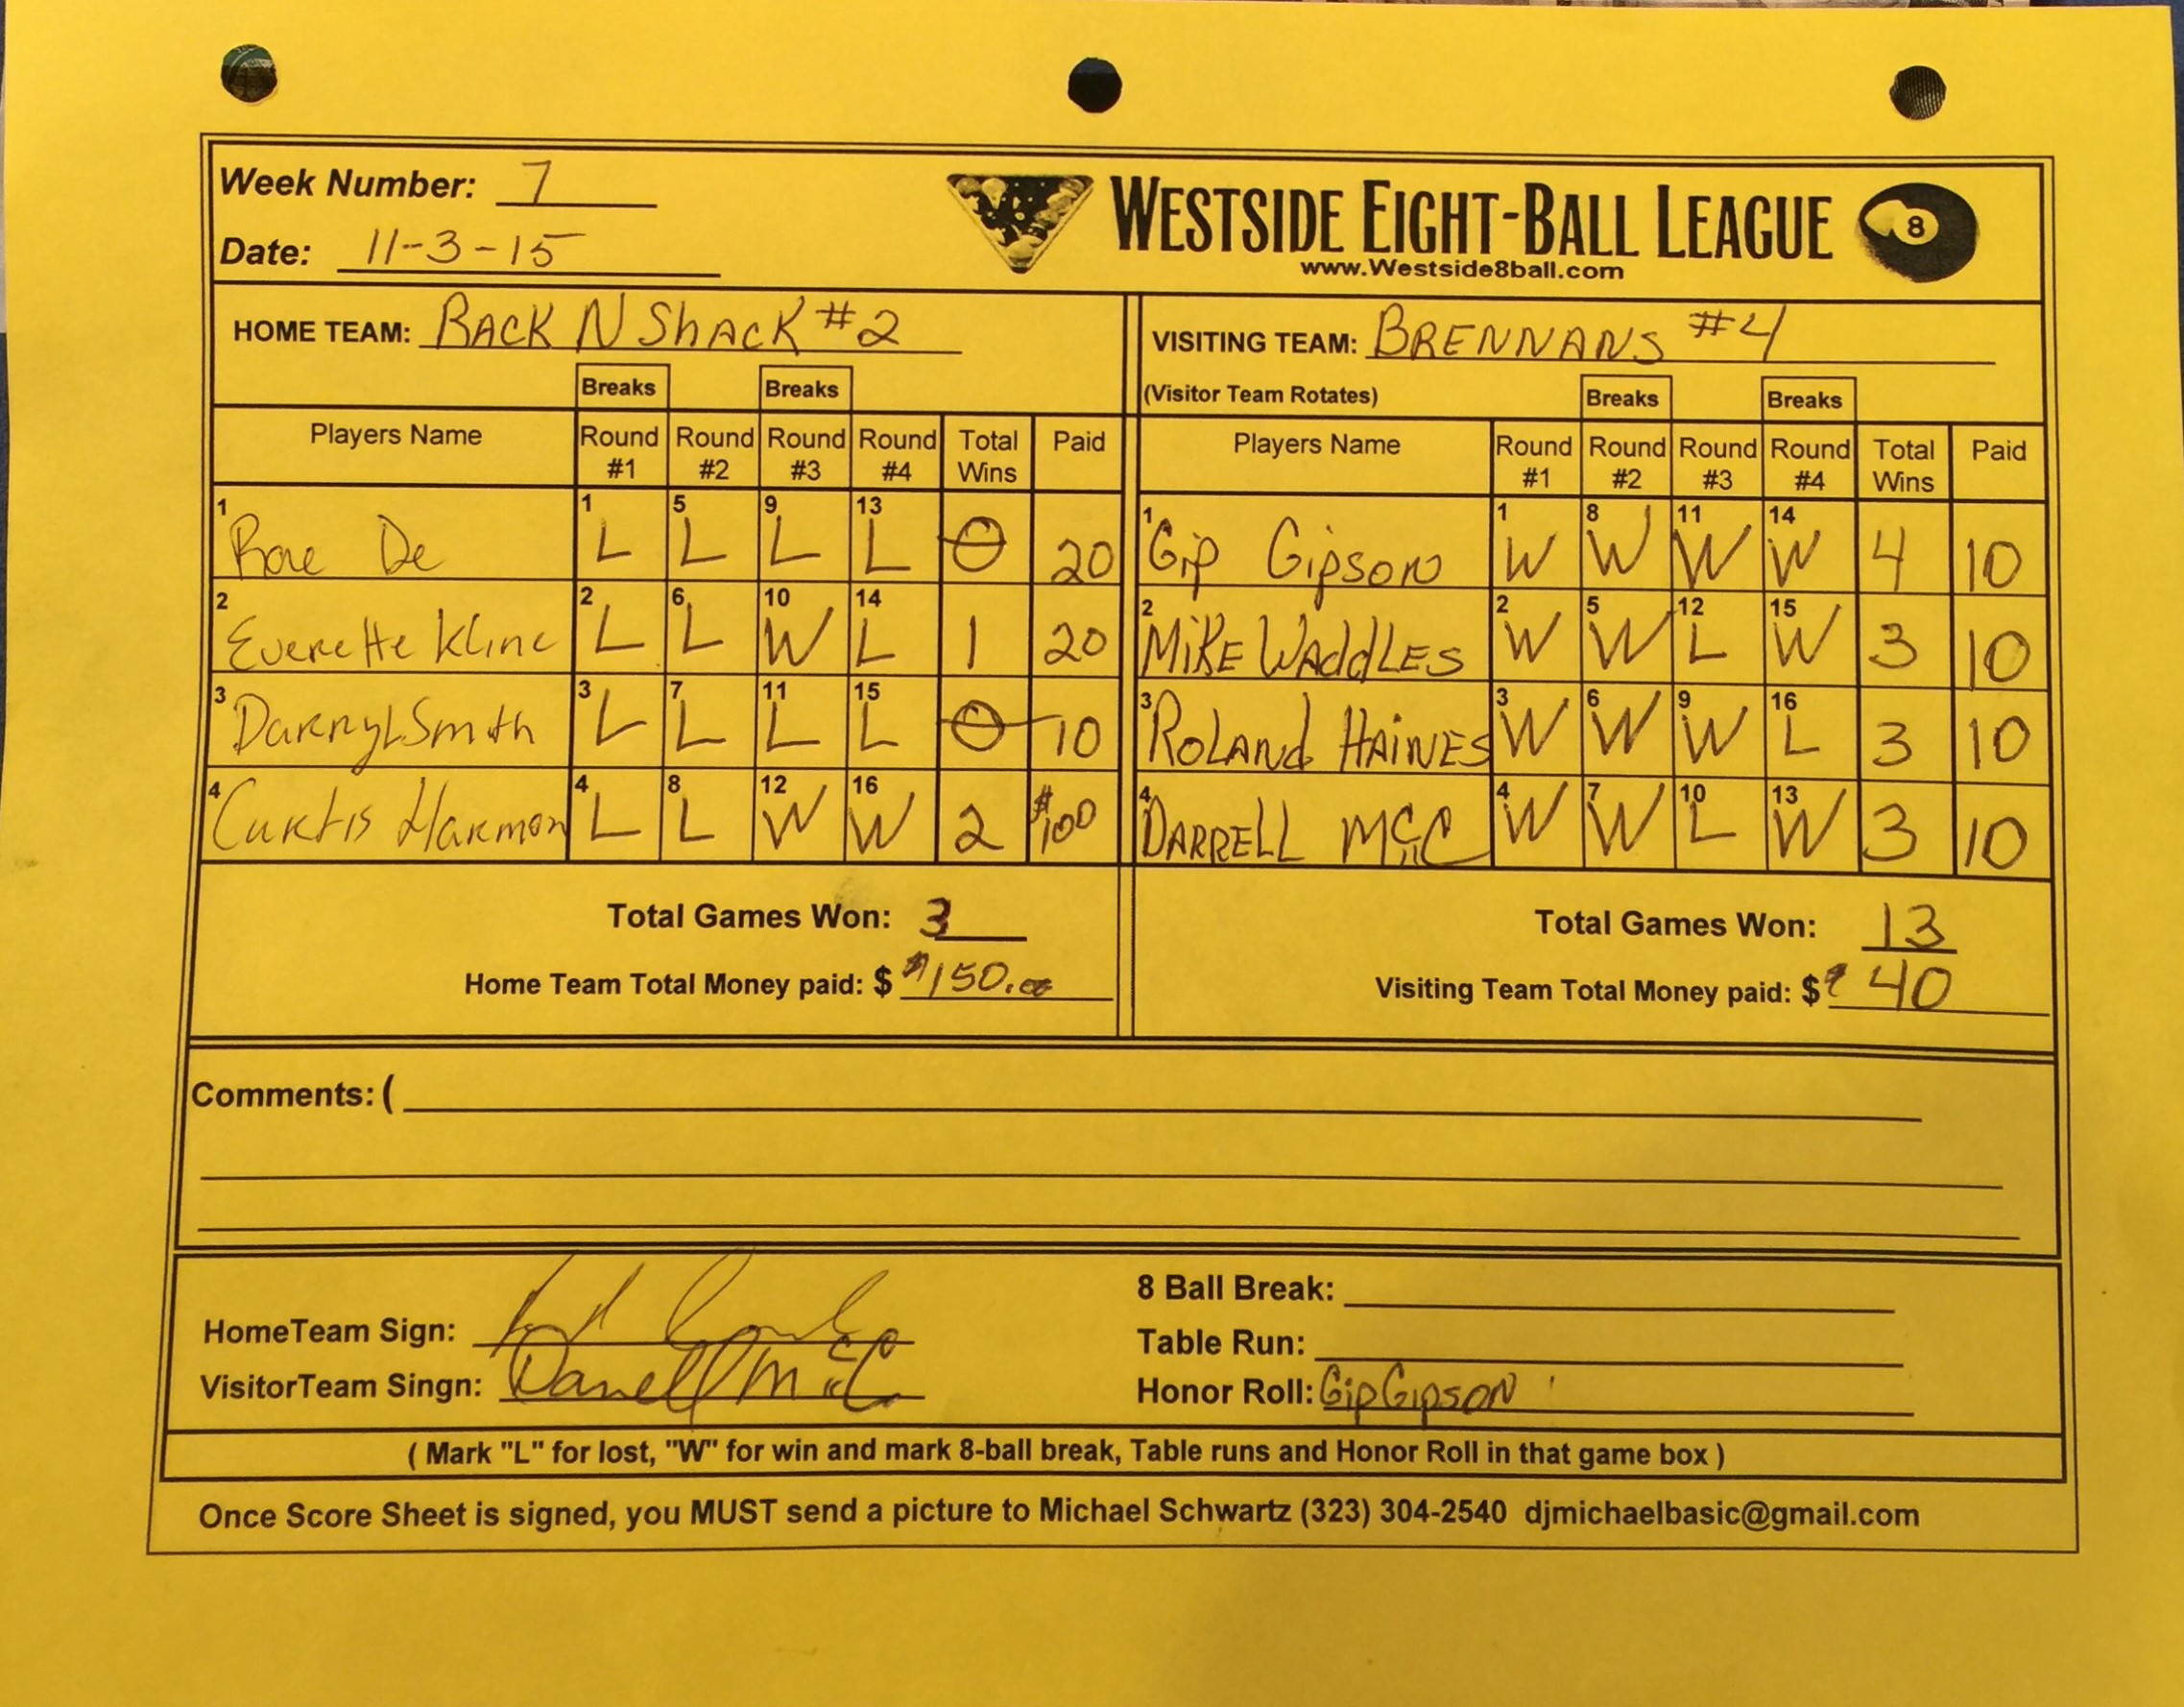 Week Number: 7
Date: 11-3-15
WESTSIDE EIGHT-BALL LEAGUE
8
www.Westside8ball.com
HOME TEAM: RACK N ShACK #2
VISITING TEAM: BRENNANS #4
(Visitor Team Rotates)
Breaks Breaks Breaks Breaks
Players Name Round #1 Round #2 Round #3 Round #4 Total Wins Paid Players Name Round #1 Round #2 Round #3 Round #4 Total Wins Paid
1 De 1 L 5 L 9 L 13 L 0 20 1 Gip Gipson 1 W 8 W 11 W 14 W 4 10
2 Everette Kline 2 L 6 L 10 W 14 L 1 20 2 MiKE WAddLES 2 W 5 W 12 L 15 W 3 10
3 DarrylSmith 3 L 7 L 11 L 15 L 0 10 3 ROLANd HAiNES 3 W 6 W 9 W 16 L 3 10
4 Curtis Harmon 4 L 8 L 12 W 16 W 2 $100 4 DARRELL McC 4 W 7 W 10 L 13 W 3 10
Total Games Won: 3
Total Games Won: 13
Home Team Total Money paid: $ $150.00
Visiting Team Total Money paid: $ $40
Comments: (
8 Ball Break:
HomeTeam Sign:
Table Run:
VisitorTeam Singn: Darrell McC
Honor Roll: Gip Gipson
( Mark "L" for lost, "W" for win and mark 8-ball break, Table runs and Honor Roll in that game box )
Once Score Sheet is signed, you MUST send a picture to Michael Schwartz (323) 304-2540 djmichaelbasic@gmail.com